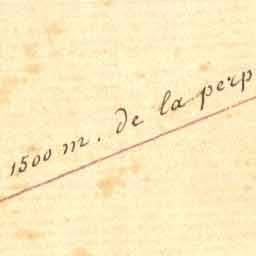 1500 m. de la perp